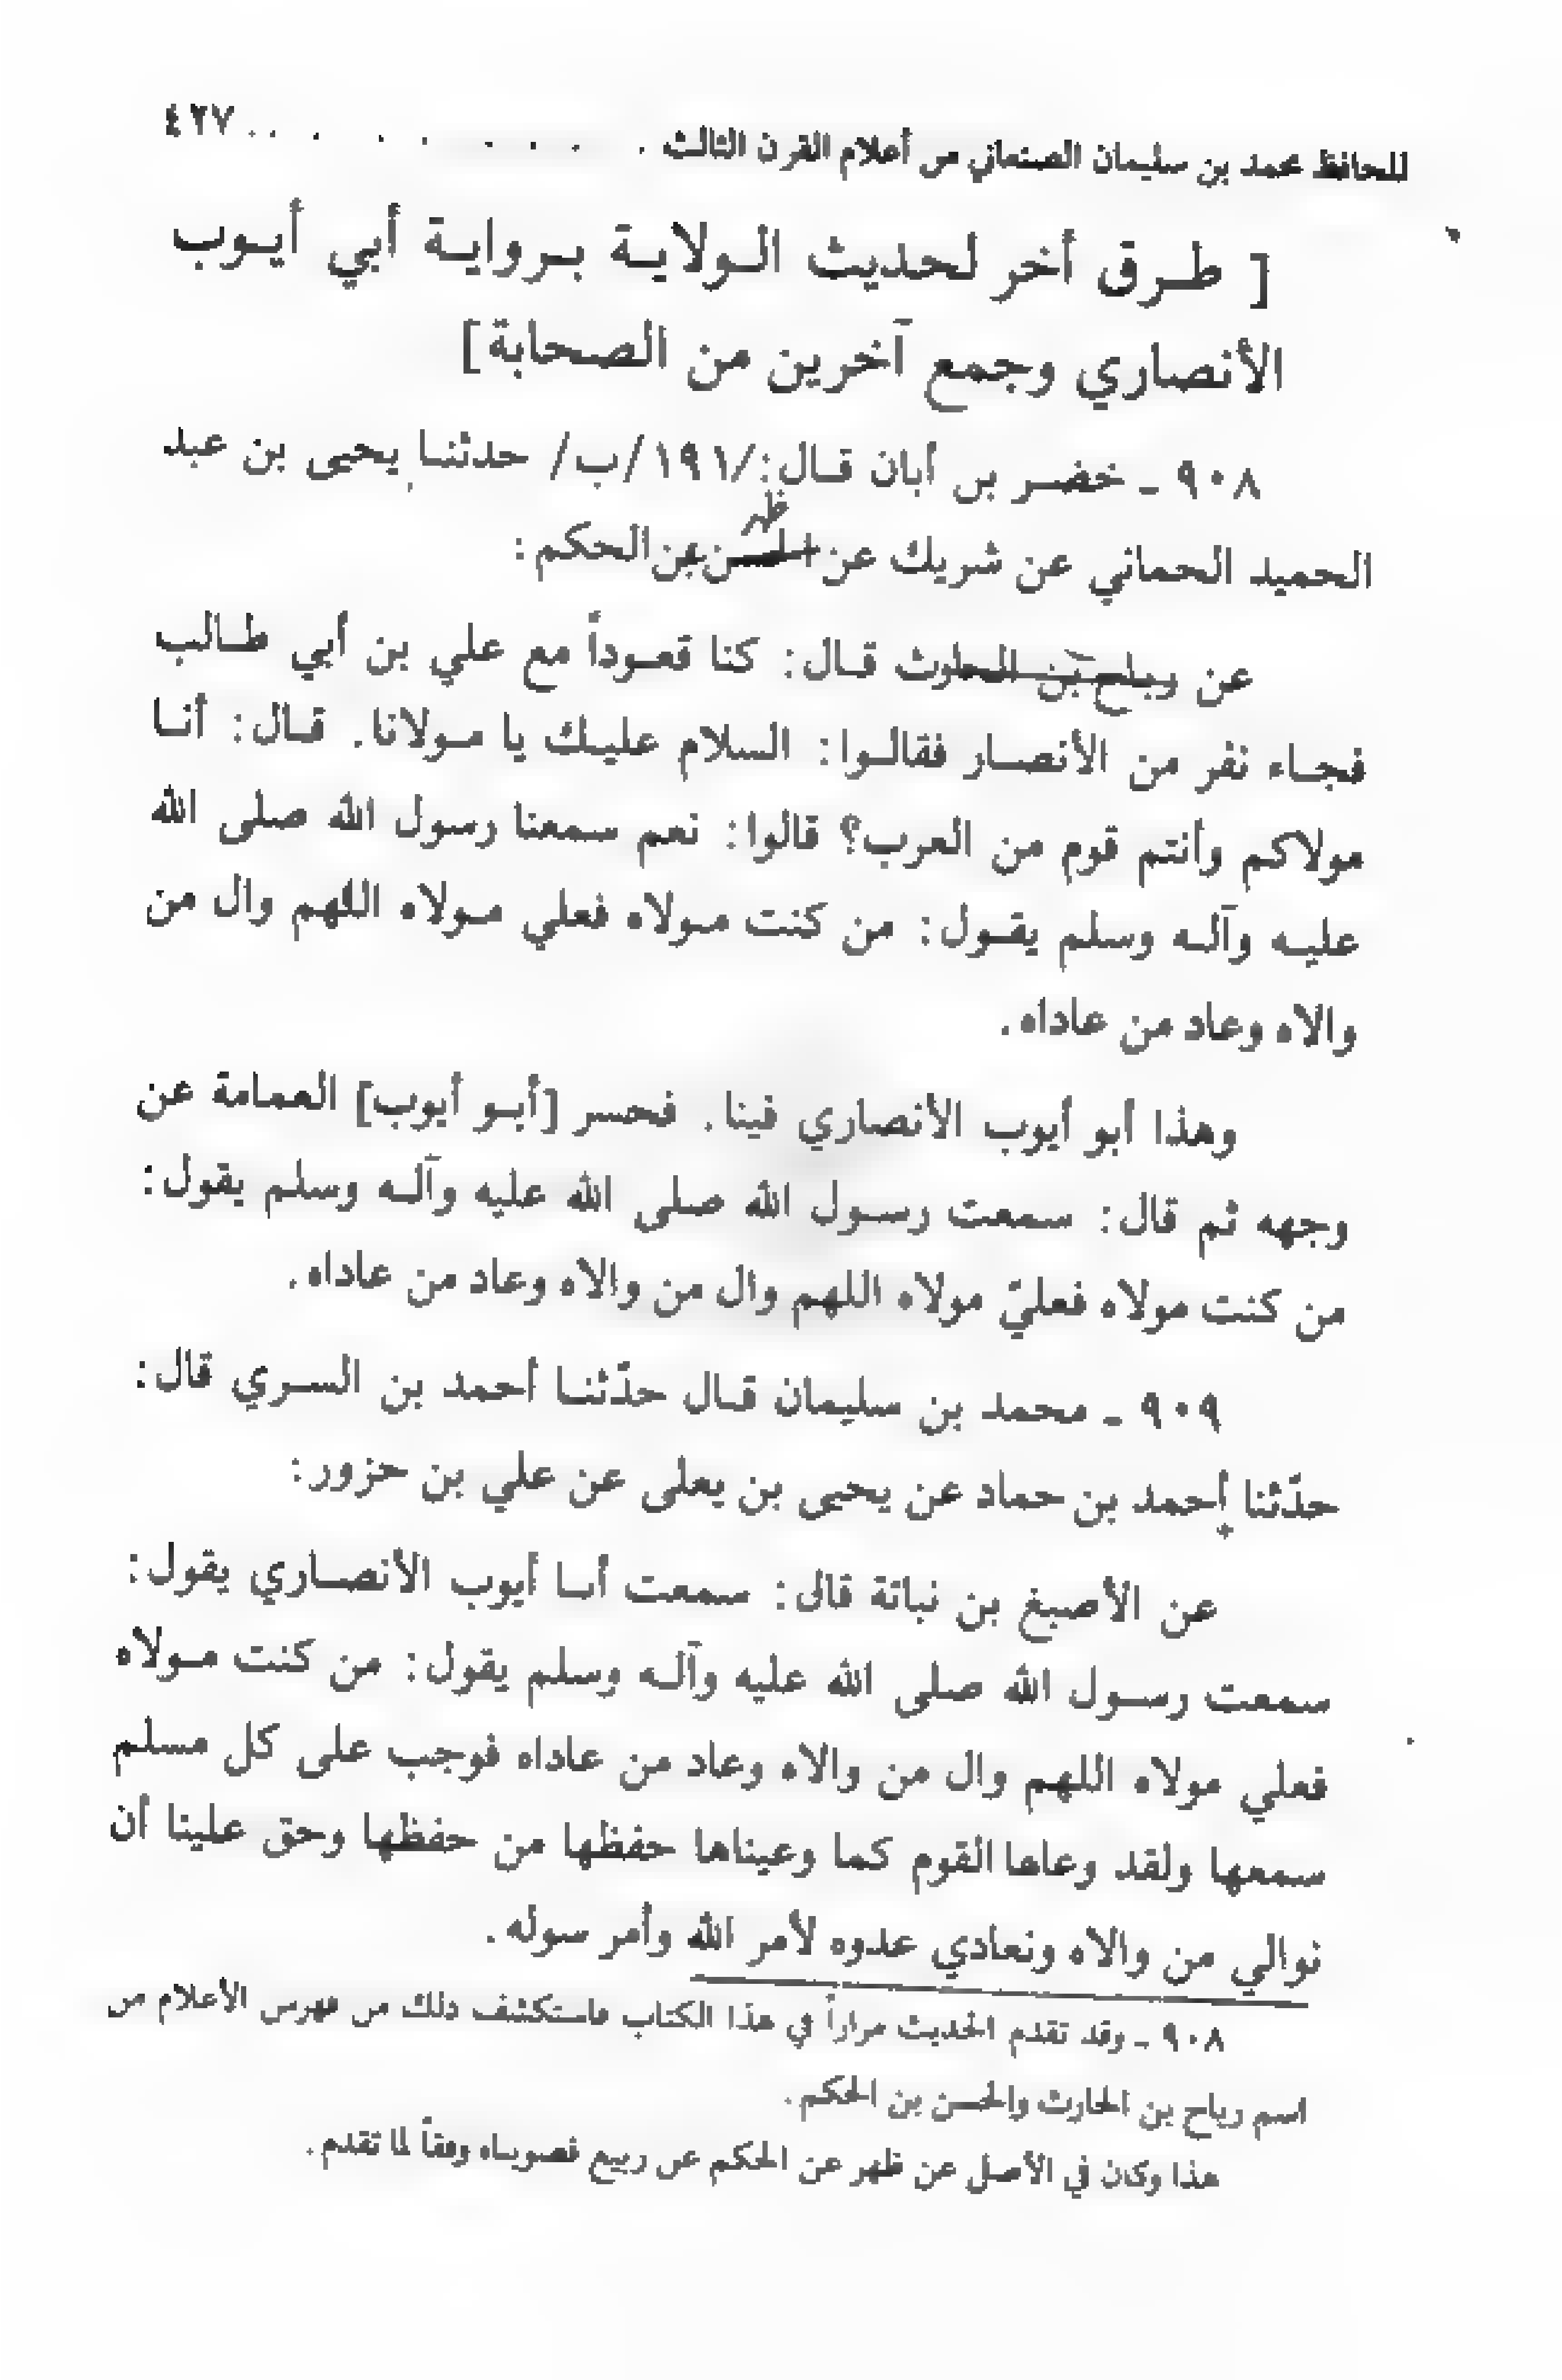 للحافظ محمد بن سليمان الصنعاني من أعلام القرن الثالث . . . . . . . . . . ٤٢٧
[ طـرق أخر لحديث الـولايـة بـروايـة أبي أيـوب
الأنصاري وجمع آخرين من الصحابة]
٩٠٨ ـ خضـر بن أبان قـال:/١٩١/ب/ حدثنـا يحيى بن عبد
ظهر
الحميد الحماني عن شريك عن الحسن عن الحكم:
عن رياح بن الحارث قـال: كنا قعـوداً مع علي بن أبي طـالب
فجـاء نفر من الأنصـار فقالـوا: السلام عليـك يا مـولانا. قـال: أنـا
مولاكم وأنتم قوم من العرب؟ قالوا: نعم سمعنا رسول الله صلى الله
عليـه وآلـه وسلم يقـول: من كنت مـولاه فعلي مـولاه اللهم وال من
والاه وعاد من عاداه.
وهذا أبو أيوب الأنصاري فينا. فحسر [أبـو أيوب] العمامة عن
وجهه ثم قال: سمعت رسـول الله صلى الله عليه وآلـه وسلم يقول:
من كنت مولاه فعليّ مولاه اللهم وال من والاه وعاد من عاداه.
٩٠٩ ـ محمد بن سليمان قـال حدّثنـا أحمد بن السـري قال:
حدّثنا أحمد بن حماد عن يحيى بن يعلى عن علي بن حزور:
عن الأصبغ بن نباتة قال: سمعت أبـا أيوب الأنصـاري يقول:
سمعت رسـول الله صلى الله عليه وآلـه وسلم يقول: من كنت مـولاه
فعلي مولاه اللهم وال من والاه وعاد من عاداه فوجب على كل مسلم
سمعها ولقد وعاها القوم كما وعيناها حفظها من حفظها وحق علينا أن
نوالي من والاه ونعادي عدوه لأمر الله وأمر سوله.
٩٠٨ ـ وقد تقدم الحديث مراراً في هذا الكتاب فاستكشف ذلك من فهرس الأعلام من
اسم رياح بن الحارث والحسن بن الحكم.
هذا وكان في الأصل عن ظهر عن الحكم عن ربيع فصوبناه وفقاً لما تقدم.